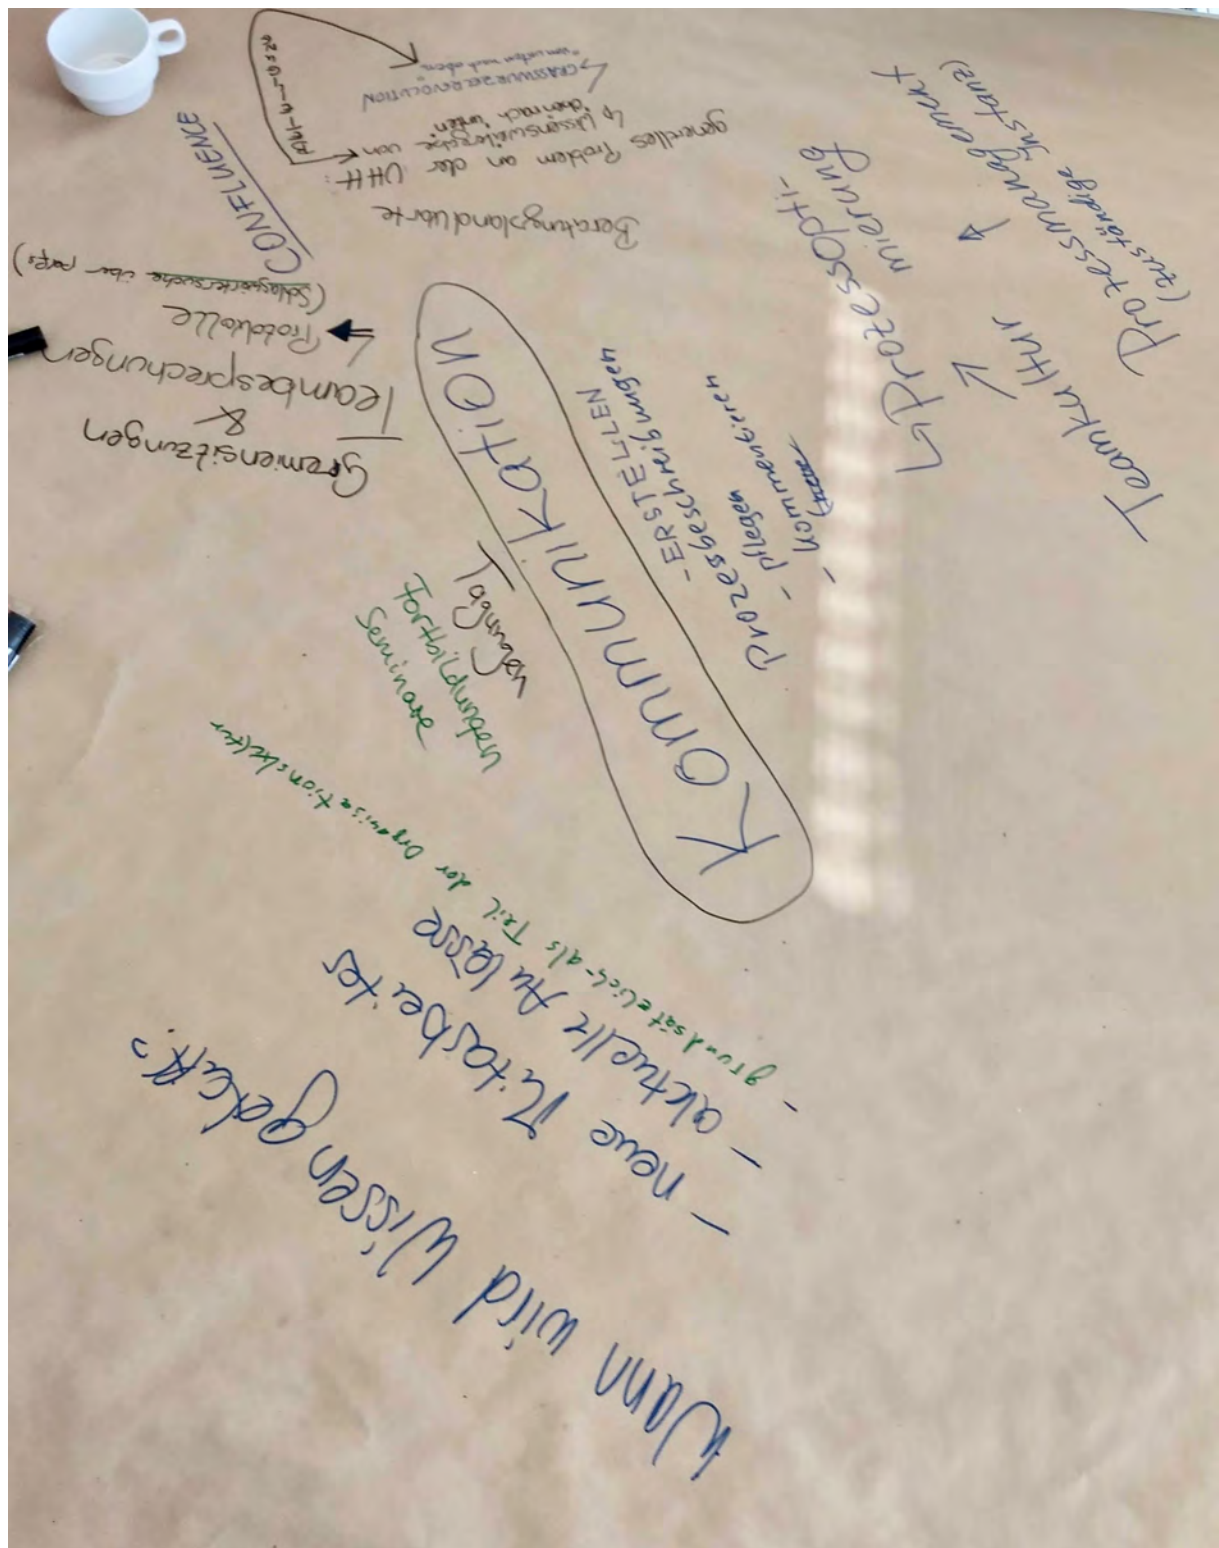 Wann wird Wissen geteilt?
- neue Mitarbeiter
- aktuelle Anlässe
- grundsätzlich - als Teil der Organisationskultur
Kommunikation
Tagungen
Fortbildungen
Seminare
Gremiensitzungen
&
Teambesprechungen
↳ Protokolle
(Schlagwörtersuche über
CONFLUENCE
Beratungslandkarte
generelles Problem an der UHH:
↳ Wissensweitergabe von
oben nach unten
→ GRASSWURZELREVOLUTION
"von unten nach oben"
Prozessbeschreibungen
- ERSTELLEN
- pflegen
- kommentieren
Teamkultur
↳ Prozessopti-
mierung
Prozessmanagement
(zuständige Instanz)